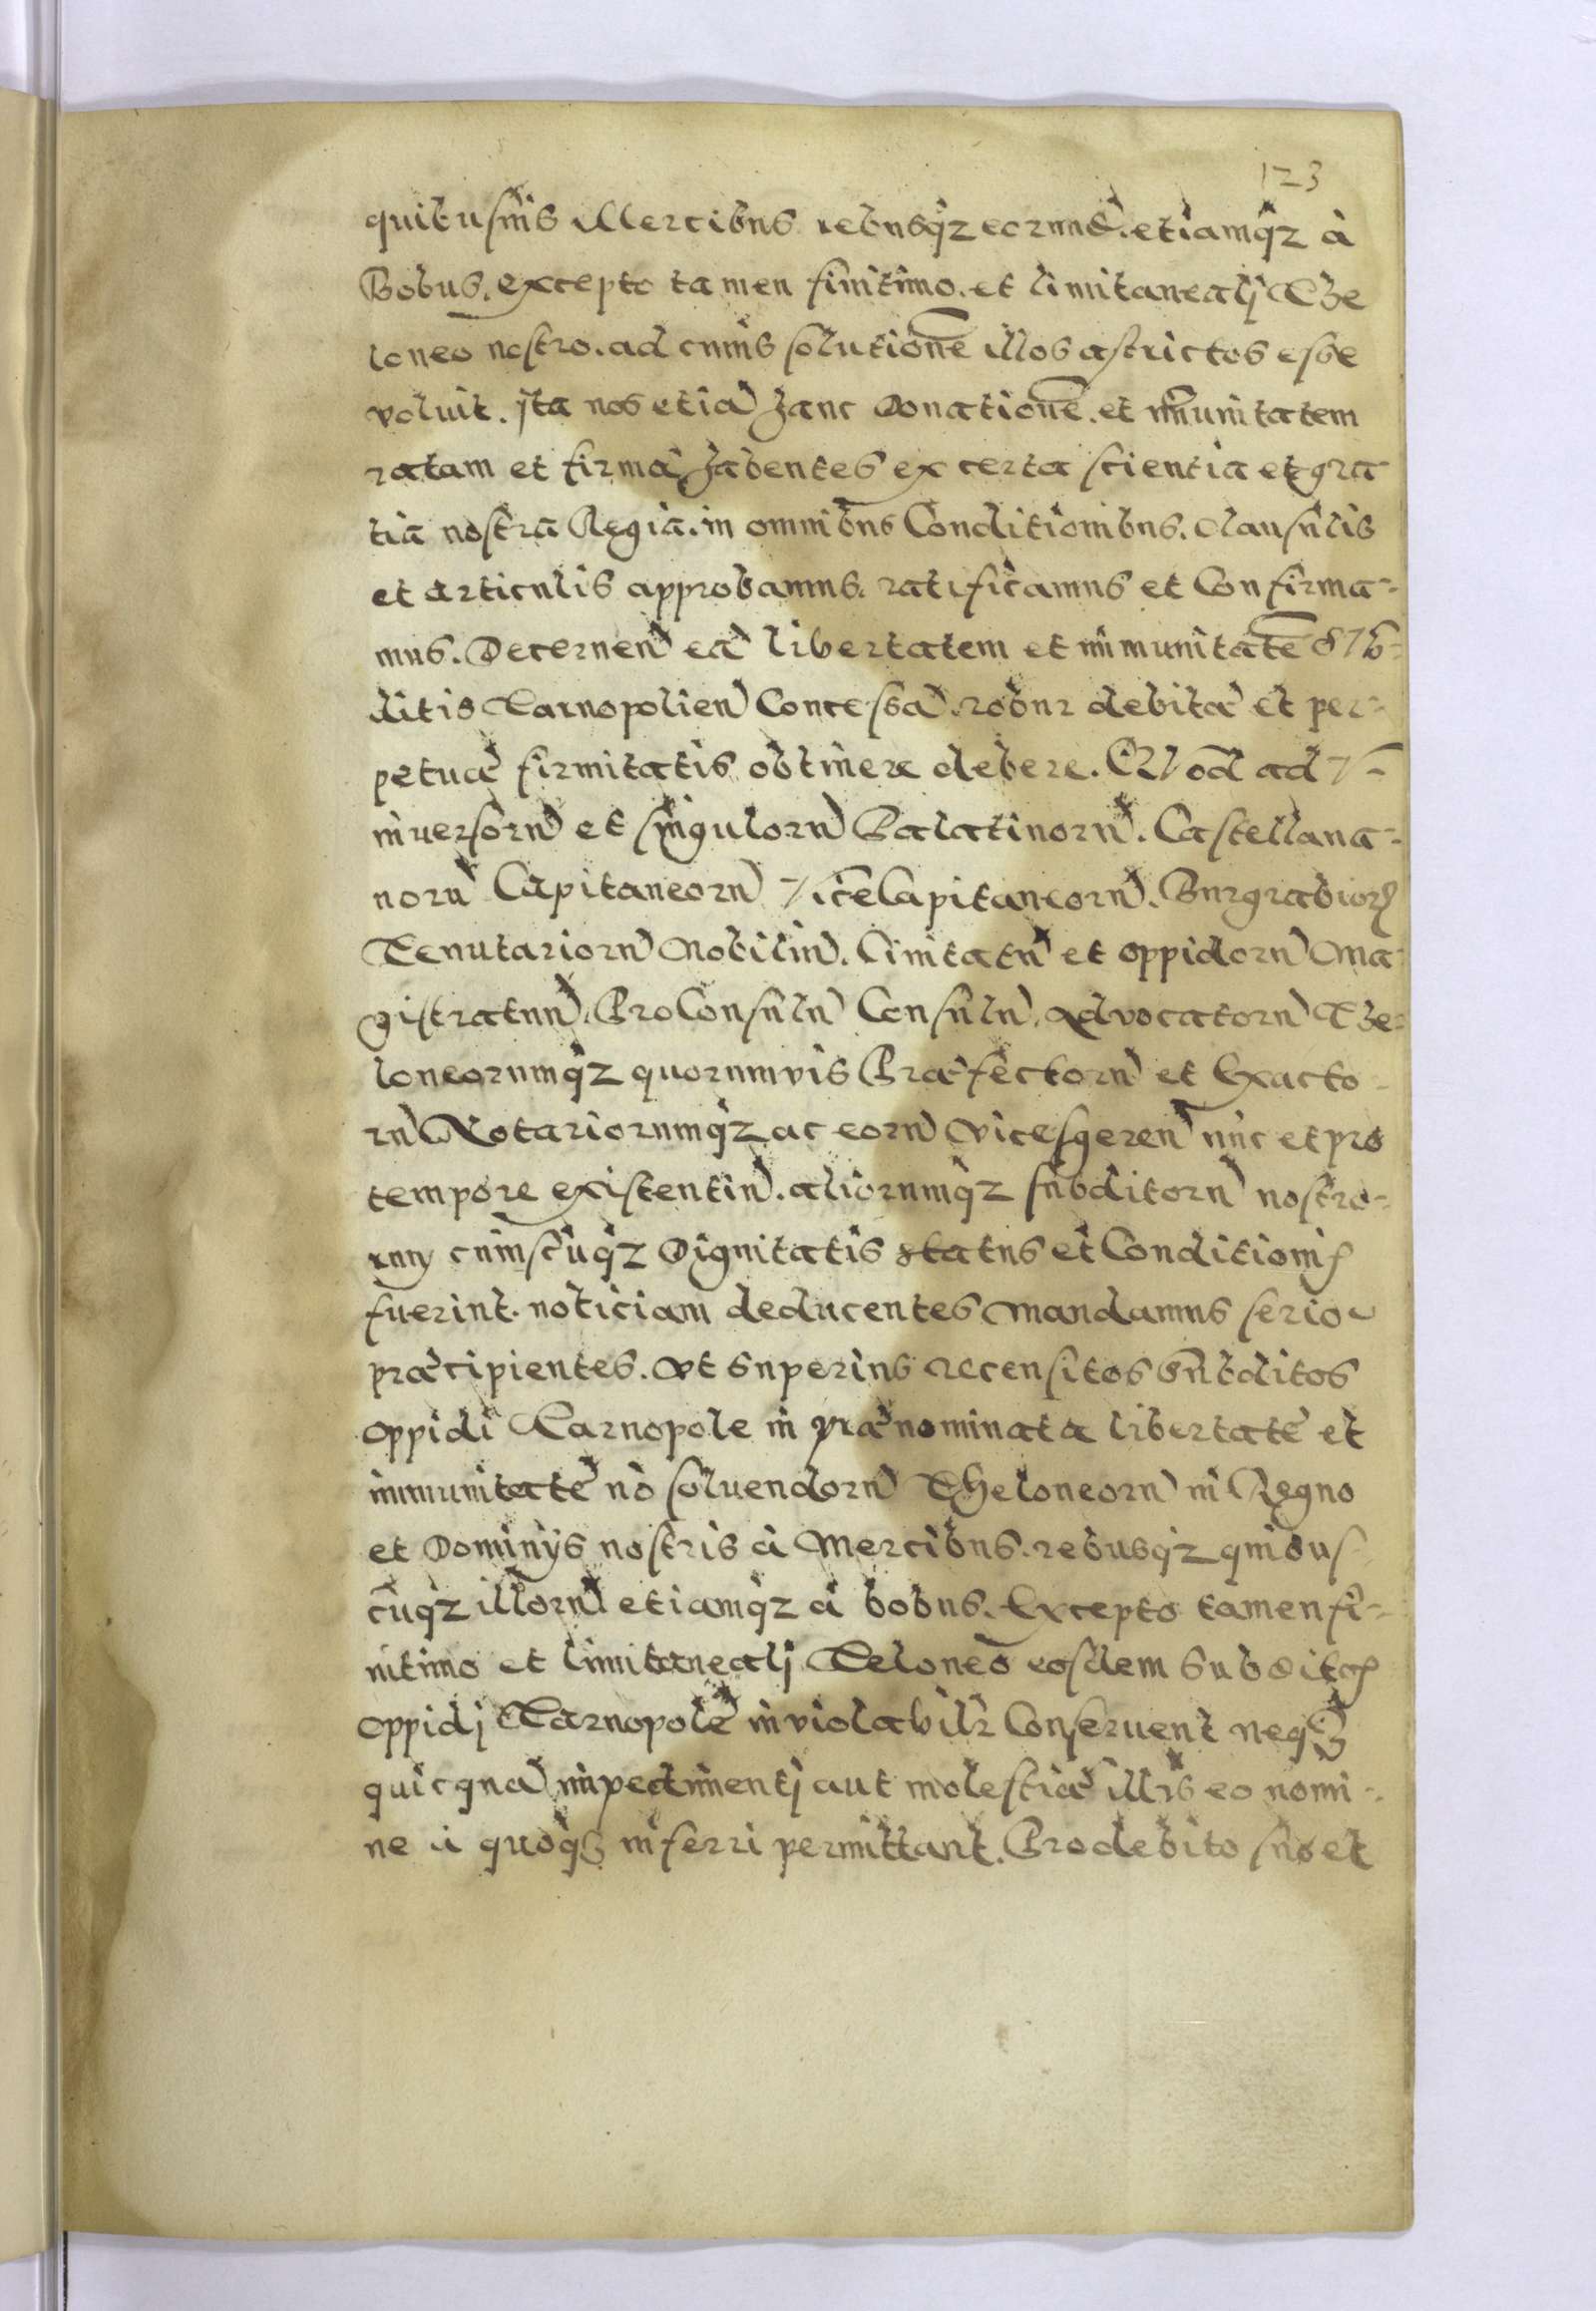 123
quibusuis Mercibus rebusq̃z eorund̀. etiamq̃z à
Bobus. excepto tamen finitimo. et limitanealj The
loneo nostro. ad cuius solutionē illos astrictos esse
voluit. jta nos etiā hanc Donationē. et im̄unitatem
ratam et firmā habentes ex certa scientia et gra
tiā nostrā Regiā. in omnibus Conditionibus. Clausulis
et Articulis approbamus. ratificamus et Confirma-
mus. Decernen̄ eā libertatem et immunitatē Sub-
ditis Tarnopolien̄ Concessā. robur debitæ et per-
petuæ firmitatis obtinere debere. Quod ad V-
niuersorū et singulorū Palatinorū. Castellana-
norū Capitaneorū ViceCapitaneorū. Burgrabiorꝝ
Tenutariorū Nobiliū. Ciuitatū et oppidorū Ma-
gistratuū. ProConsulū Consulū. Advocatorū The-
loneorumq̃z quorumvis Præfectorū et Exacto-
rū Notariorumq̃z ac eorū Vicesgeren̄ nūc et pro
tempore existentiū. aliorumq̃z subditorū nostro-
rum cuiuscūq̃z Dignitatis status et Conditionis
fuerint. noticiam deducentes Mandamus serio
præcipientes. Vt superius recensitos Subditos
oppidi Tarnopole in prænominata libertatē et
immunitatē nō soluendorū Theloneorū in Regno
et Dominijs nostris à Mercibus. rebusq̃z quibus
cūq̃z illorū etiamq̃z à bobus. Excepto tamen fi-
nitimo et limitanealj Teloneo eosdem Subditos
oppidj Tarnopolē inviolabilr̃ Conseruent neqꝫ
quicquā impedimentj aut molestiæ illis eo nomi-
ne à quoqꝫ inferri permittant. Pro debito suo et